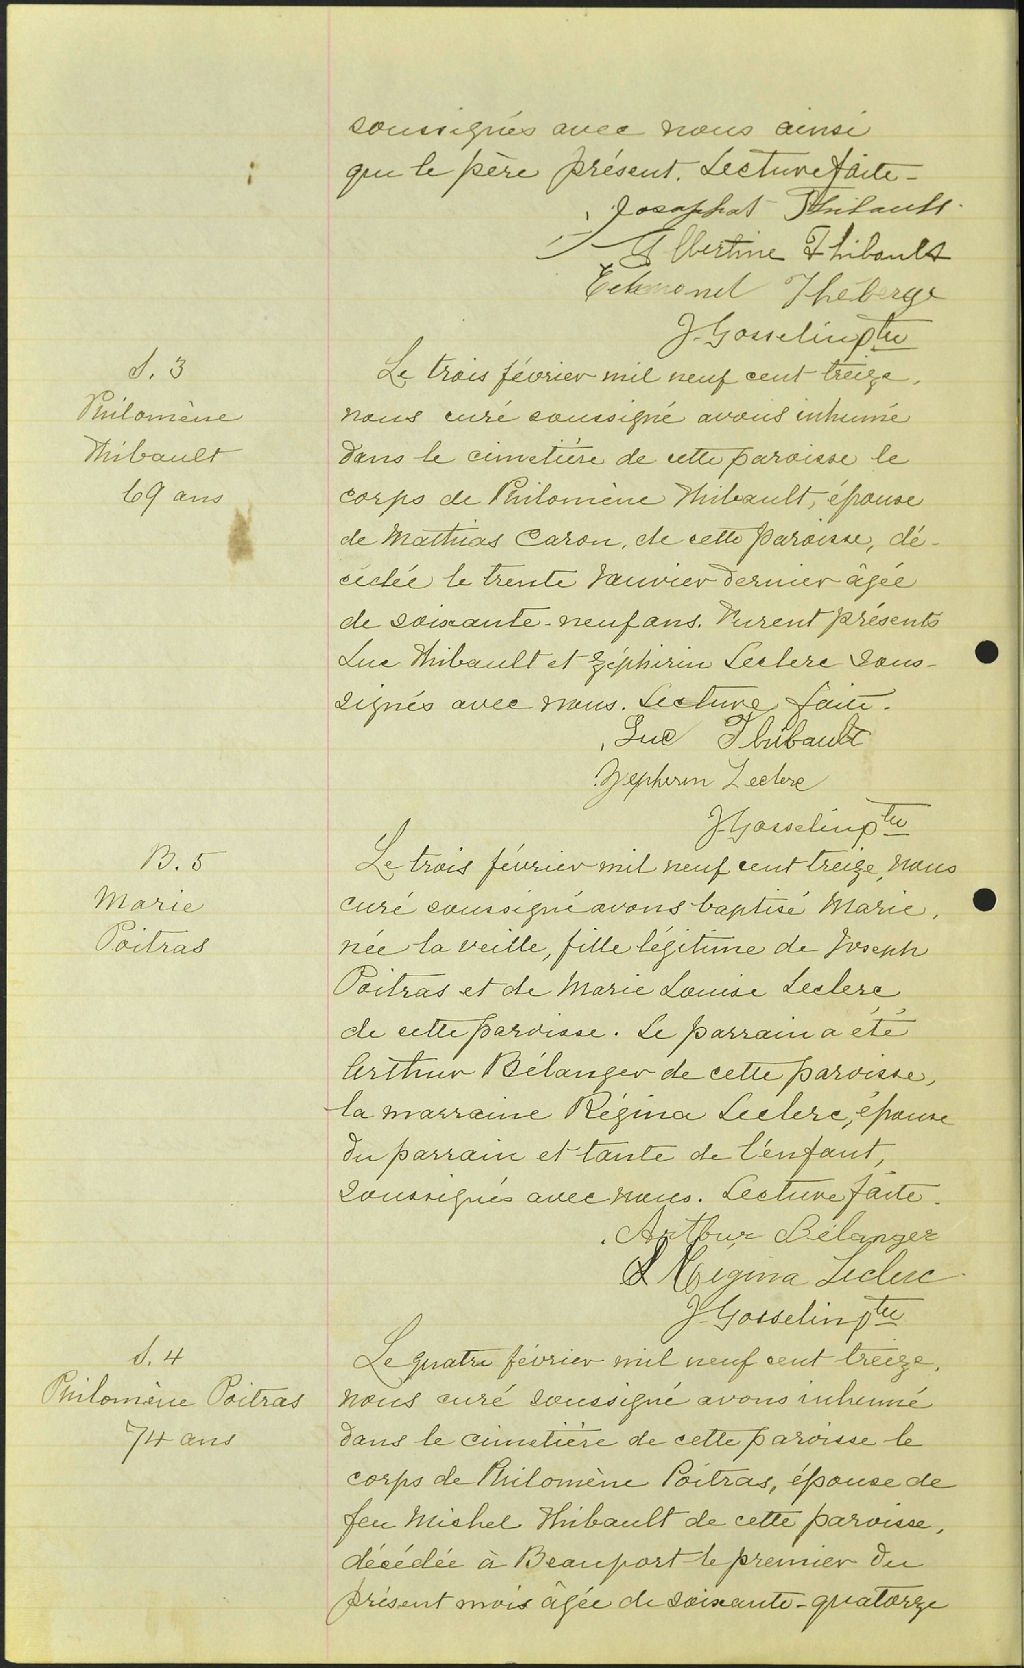 soussignés avec nous ainsi
que le père présent. Lecture faite -
Josaphat Thibault.
Albertine Thibault
Edmond Théberge
J. Gosselin ptre
S. 3
Philomène
Thibault
69 ans
Le trois février mil neuf cent treize,
nous curé soussigné avons inhumé
dans le cimetière de cette paroisse le
corps de Philomène Thibault, épouse
de Mathias Caron, de cette paroisse, dé-
cédée le trente Janvier dernier âgée
de soixante-neuf ans. Furent présents
Luc Thibault et Zéphirin Leclerc sous-
signés avec nous. Lecture faite.
Luc Thibault
Zephirin Leclerc
J. Gosselin ptre
B. 5
Marie
Poitras
Le trois février mil neuf cent treize, nous
curé soussigné avons baptisé Marie,
née la veille, fille légitime de Joseph
Poitras et de Marie Louise Leclerc
de cette paroisse. Le parrain a été
Arthur Bélanger de cette paroisse,
la marraine Régina Leclerc, épouse
du parrain et tante de l'enfant,
soussignés avec nous. Lecture faite.
Arthur Bélanger
Régina Leclerc
J. Gosselin ptre
S. 4
Philomène Poitras
74 ans
Le quatre février mil neuf cent treize,
nous curé soussigné avons inhumé
dans le cimetière de cette paroisse le
corps de Philomène Poitras, épouse de
feu Michel Thibault de cette paroisse,
décédée à Beauport le premier du
présent mois âgée de soixante-quatorze